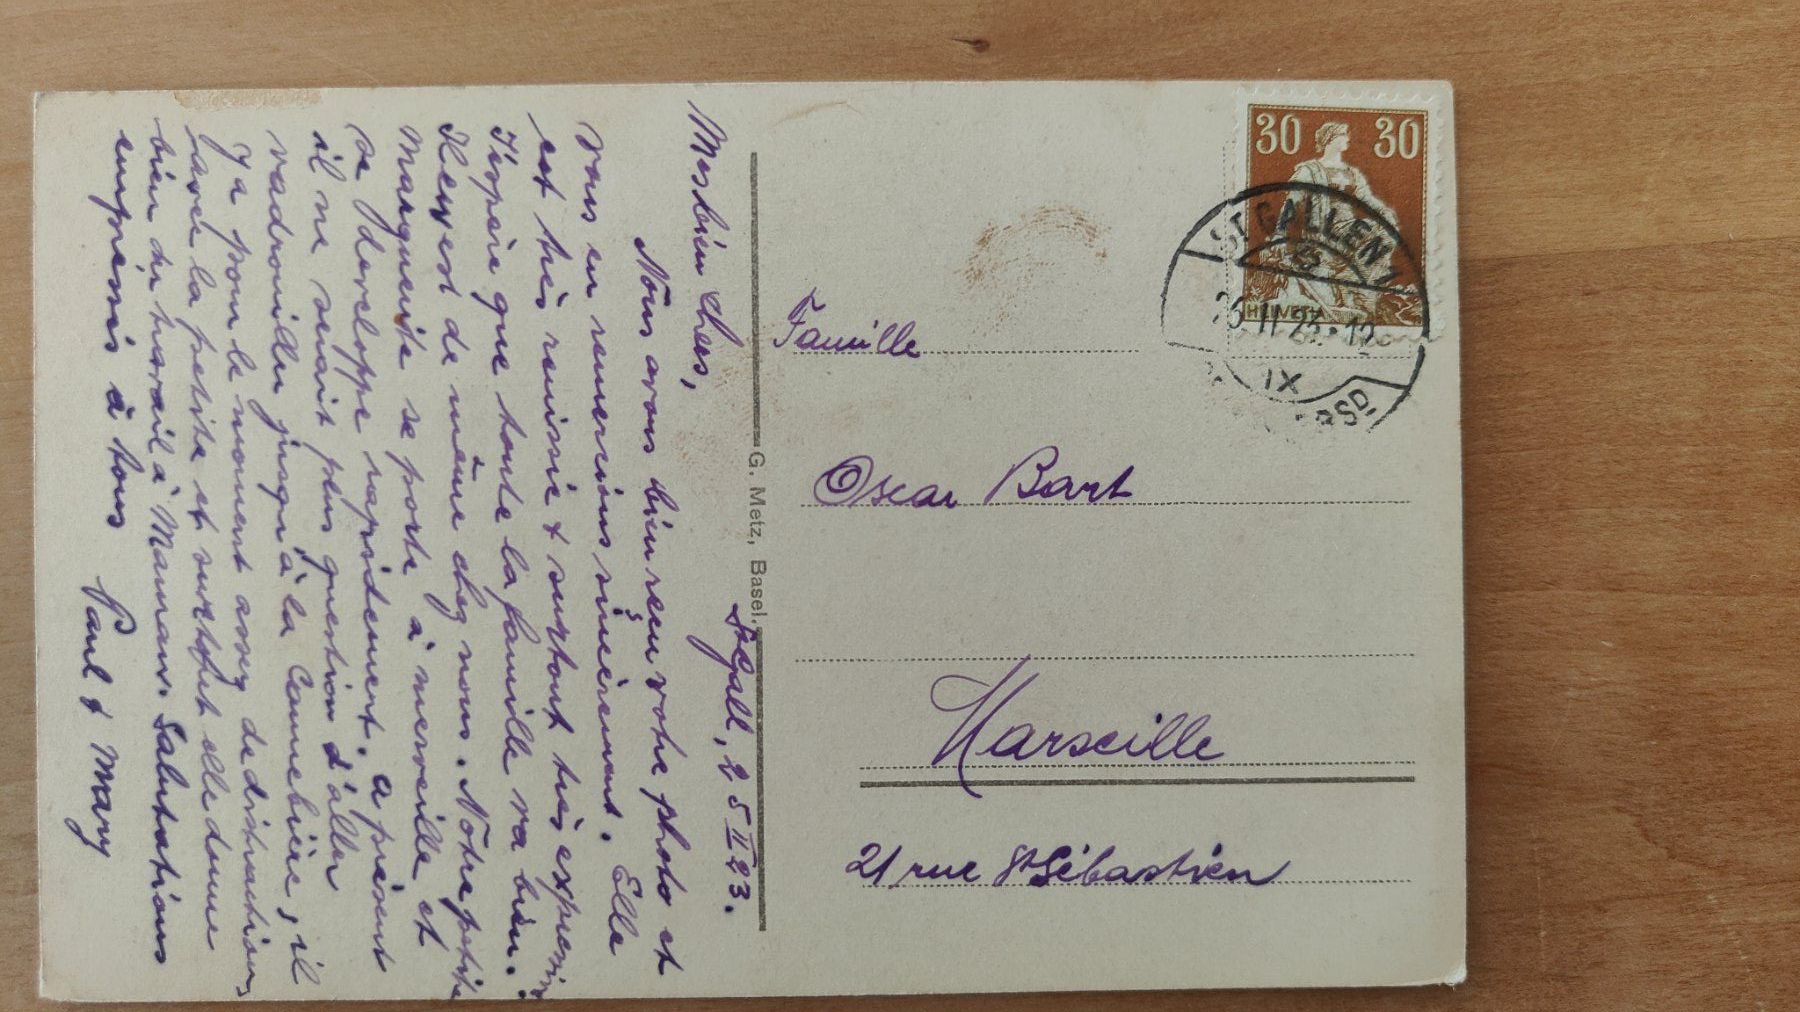 St. Gall, 25 II 23.
Mes bien chers,
Nous avons bien reçu votre photo et
vous en remercions sincèrement. Elle
est très reussie & surtout très expressive
J'espère que toute la famille va bien.
Il en est de même chez nous. Notre petite
Marguerite se porte à merveille et
se developpe rapidement. A présent
il ne serait plus question d'aller
vadrouiller jusqu'à la Cannebière, il
y a pour le moment assez de distractions
avec la petite et surtout elle donne
bien du travail à Maman. Salutations
empressés à tous
Paul & Mary
G. Metz, Basel.
30 30
HELVETIA
ST. GALLEN 1
25. II. 23. 12
IX
Famille
Oscar Bart
Marseille
21 rue St Sébastien